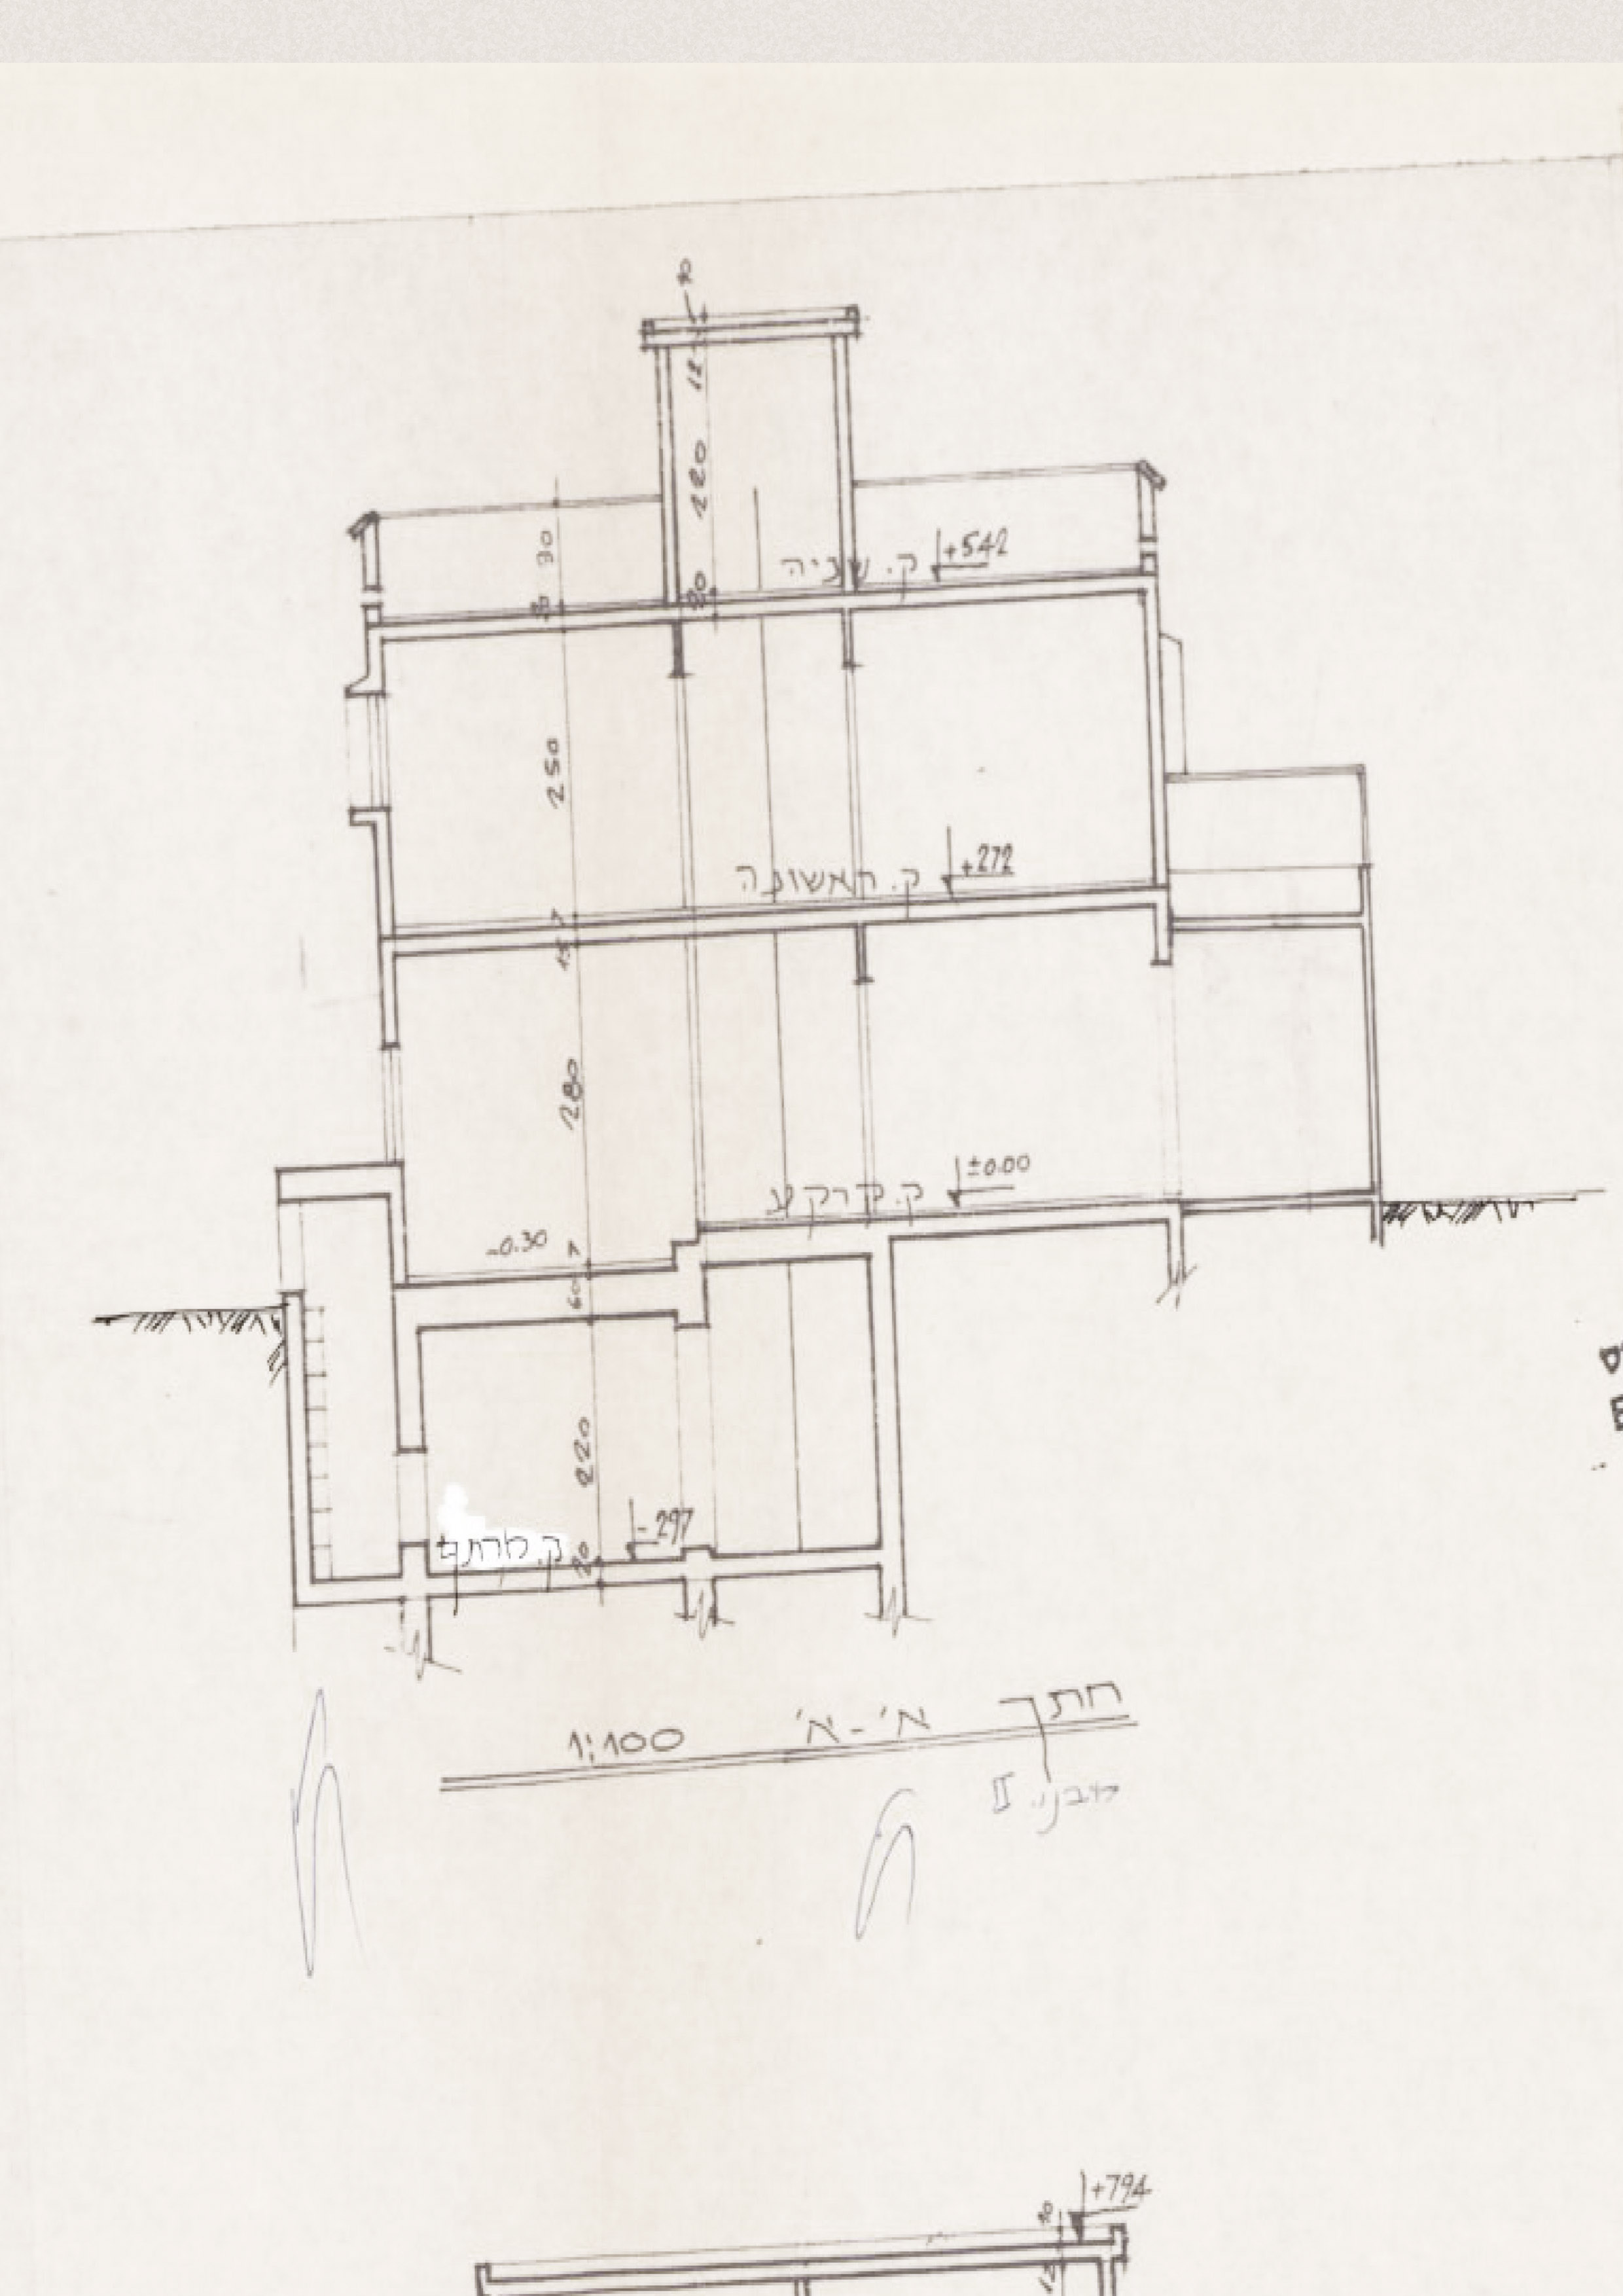 10
12
220
90
ק. שניה
+542
20
250
ק. ראשונה
+272
7
15
280
ק. קרקע
±0.00
-0.30
7
60
220
ק. מרתף
-297
20
חתך א'-א' 1:100
מבנה II
+794
10